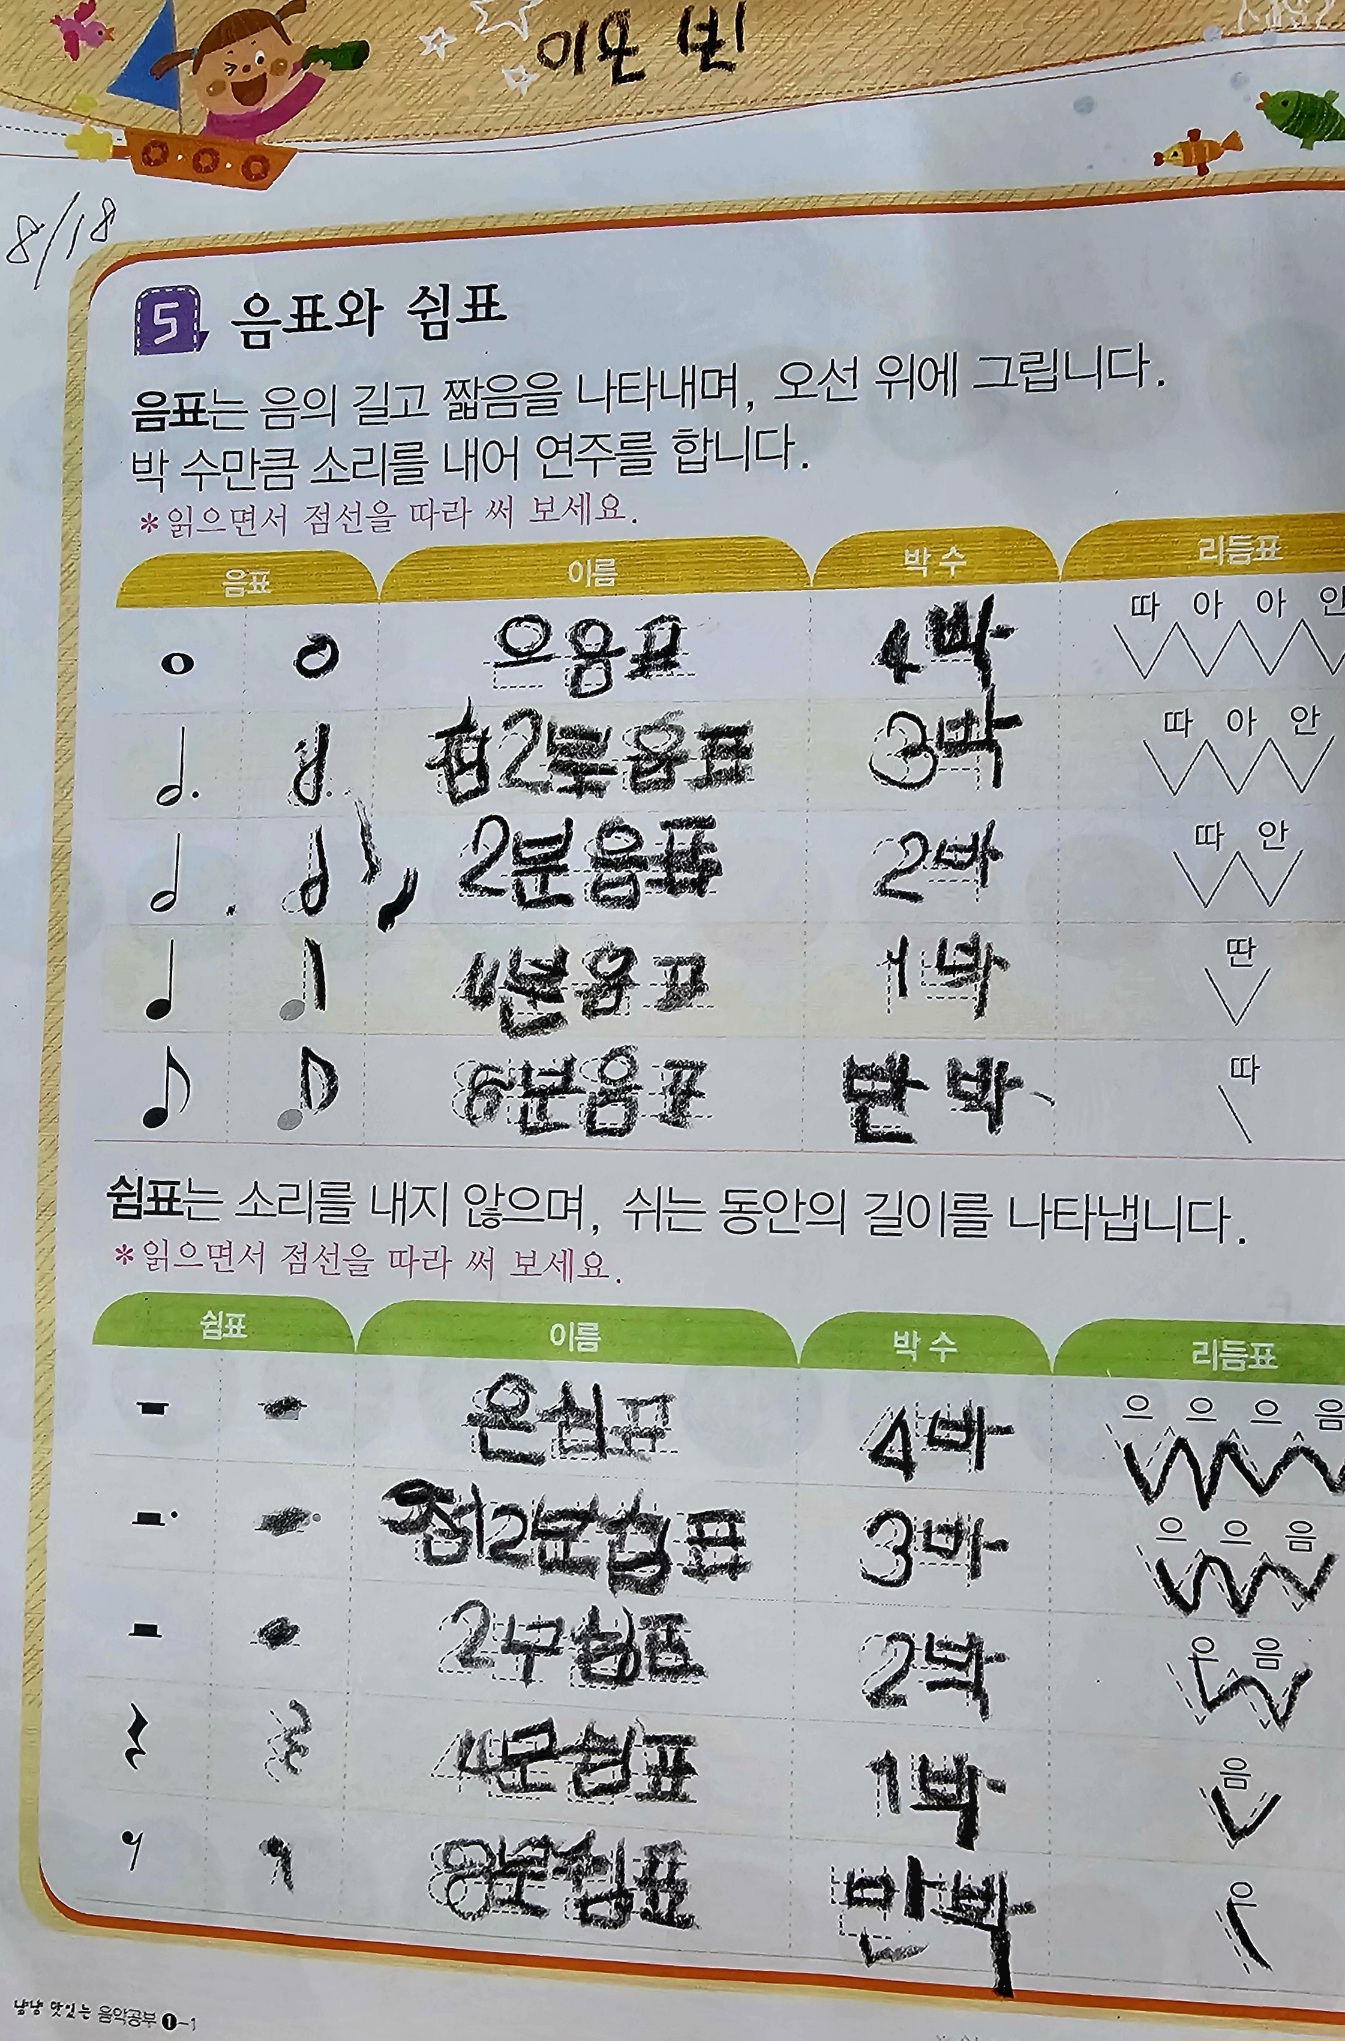 이온빈
8/18
5 음표와 쉼표
음표는 음의 길고 짧음을 나타내며, 오선 위에 그립니다.
박 수만큼 소리를 내어 연주를 합니다.
*읽으면서 점선을 따라 써 보세요.
음표 이름 박 수 리듬표
따 아 아 안
으음표 4박
따 아 안
점2분음표 3박
따 안
2분음표 2바
딴
4분음표 1박
따
분음표 반박
쉼표는 소리를 내지 않으며, 쉬는 동안의 길이를 나타냅니다.
*읽으면서 점선을 따라 써 보세요.
쉼표 이름 박 수 리듬표
으 으 으 음
온쉼표 4바
으 으 음
점2분쉼표 3바
으 음
2분쉼표 2박
음
4분쉼표 1박
으
8분쉼표 반박
냠냠 맛있는 음악공부 ❶-1